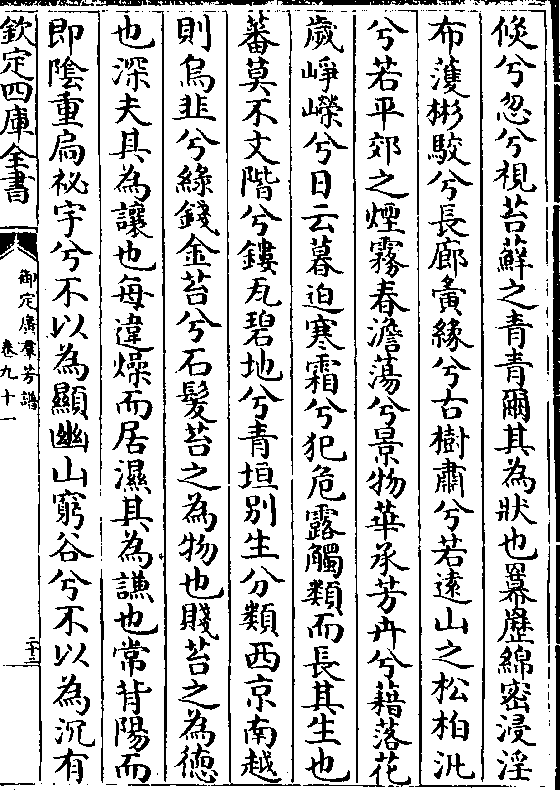 倐兮忽兮視苔蘚之青青爾其為狀也羃歴綿密浸淫
布濩彬駮兮長廊夤緣兮古樹肅兮若逺山之松柏汎
兮若平郊之煙霧春澹蕩兮景物華承芳卉兮藉落花
歲崢嶸兮日云暮迫寒霜兮犯危露觸類而長其生也
蕃莫不丈階兮鏤瓦碧地兮青垣别生分類西京南越
則烏韭兮緣錢金苔兮石髮苔之為物也賤苔之為徳
也深夫具為讓也每違燥而居濕其為謙也常背陽而
即陰重扄祕宇兮不以為顯幽山窮谷兮不以為沉有
欽定四庫全書
御定廣羣芳譜
卷九十一
二十三